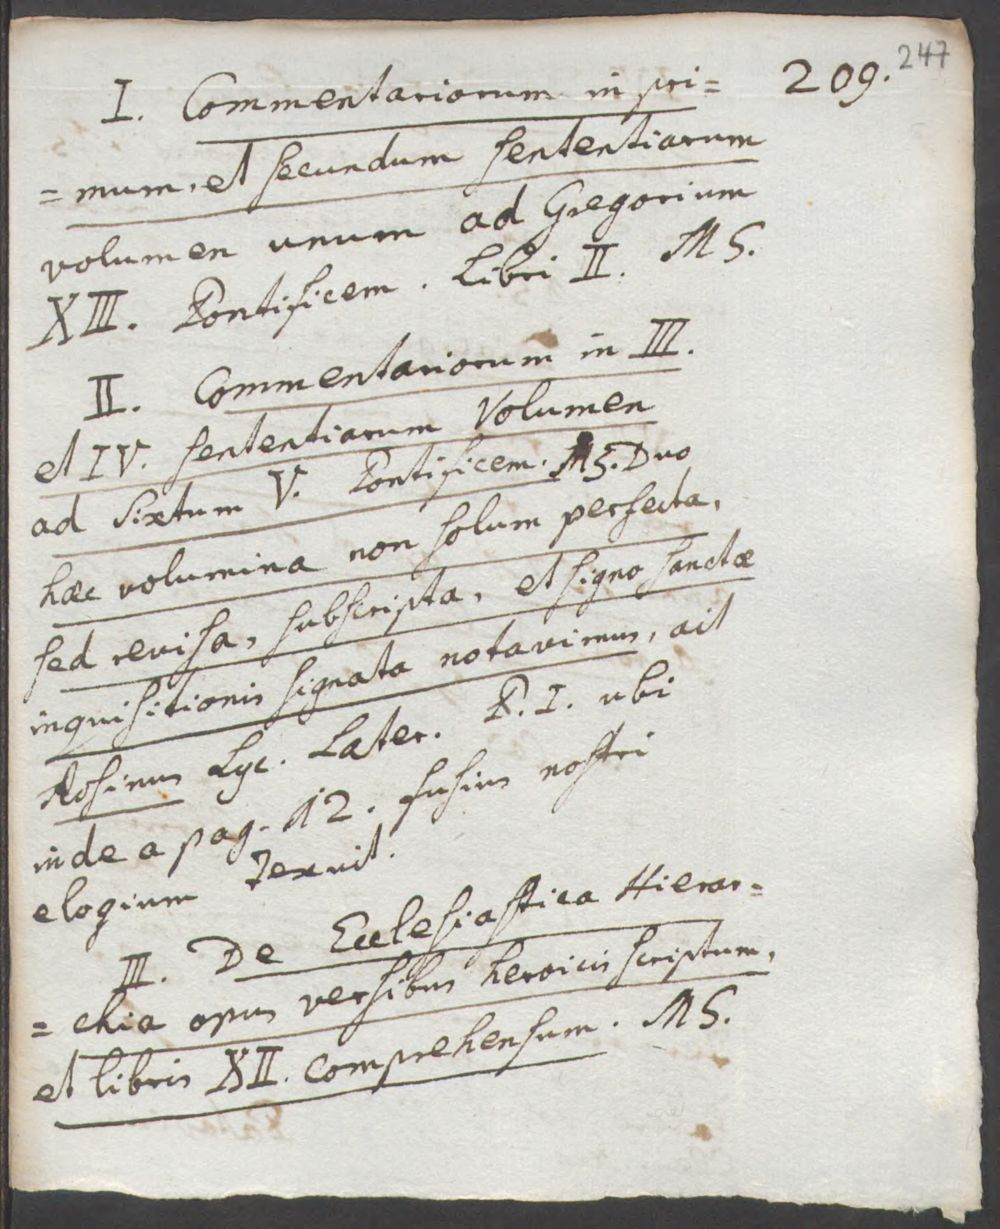 247
209.
I. Commentariorum in pri=
=mum, et secundum sententiarum
volumen unum ad Gregorium
XIII. Pontificem. Libri II. MS.
II. Commentariorum in III.
et IV. sententiarum Volumen
ad Sixtum V. Pontificem. MS. Duo
hæc volumina non solum perfecta,
sed revisa, subscripta, et signo sanctæ
inquisitionis signata notavimus, ait
Rosinus Lyc. Later. P. I. ubi
inde a pag. 12. fusius nostri
elogium texuit.
III. De Ecclesiastica Hierar=
=chia opus versibus heroicis scriptum,
et libris XII. comprehensum. MS.